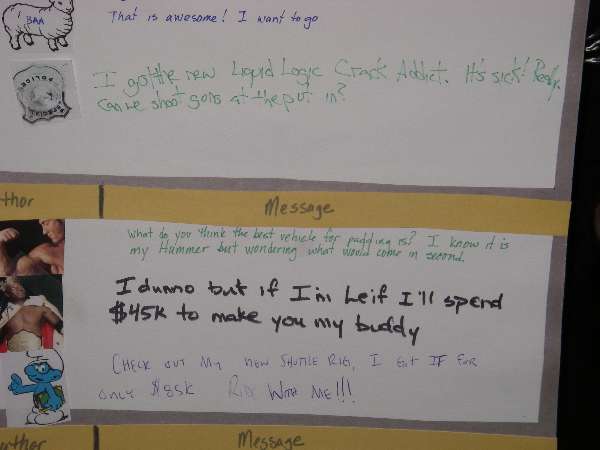 BAA
That is awesome! I want to go
POLICE
SPECIAL
I got the new Liquid Logic Crack Addict. It's sick! Really.
Can we shoot guns at the put in?
thor
Message
What do you think the best vehicle for paddling is? I know it is
my Hummer but wondering what would come in second.
I dunno but if I'm Leif I'll spend
$45K to make you my buddy
CHECK OUT MY NEW SHUTTLE RIG, I GOT IT FOR
ONLY $85K RIDE WITH ME!!!
uthor
Message